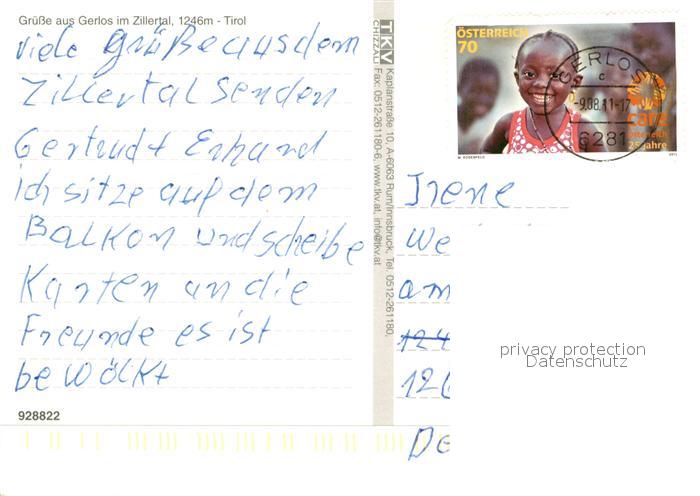 Grüße aus Gerlos im Zillertal, 1246m - Tirol
viele Grüße aus dem
Zillertal senden
Gertrudt Erhard
ich sitze auf dem
Balkon und scheibe
Karten an die
Freunde es ist
bewölkt
928822
TKV
CHIZZALI
Kaplanstraße 10, A-6063 Rum/Innsbruck, Tel. 0512-261180,
Fax: 0512-261180-6, www.tkv.at, info@tkv.at
ÖSTERREICH
70
GERLOS
c
-9.08.11-17
6281
care
österreich
25 jahre
Irene
We
am
124
126
De
privacy protection
Datenschutz